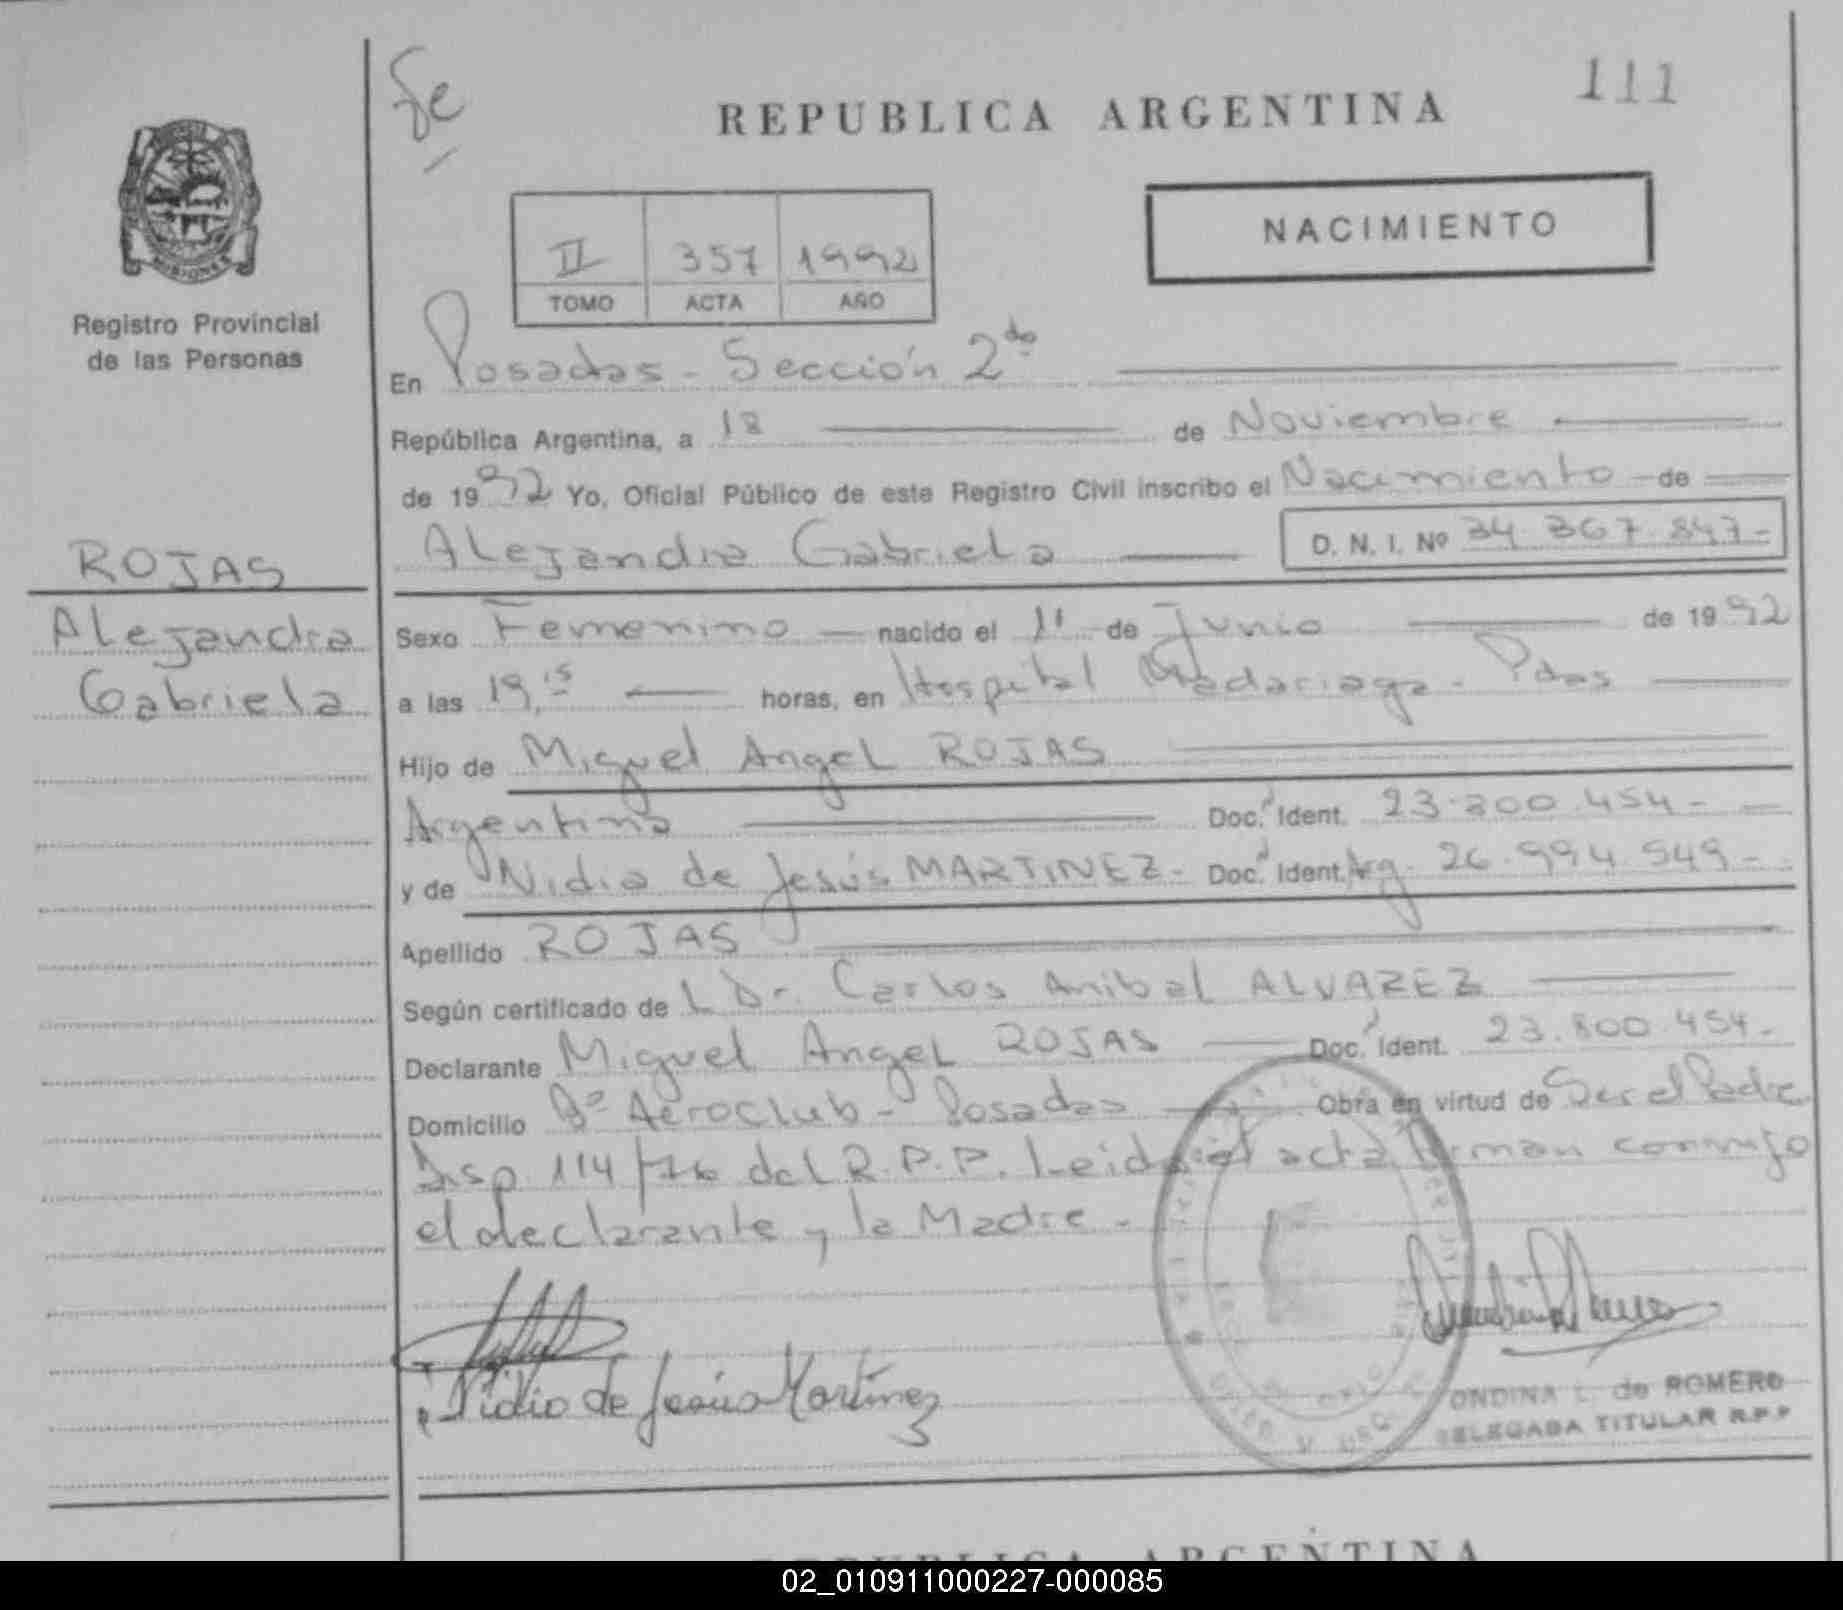 fe
REPUBLICA ARGENTINA
111
MISIONES
Registro Provincial
de las Personas
II 357 1992
TOMO ACTA AÑO
NACIMIENTO
En Posadas - Sección 2da
República Argentina, a 18 de Noviembre
de 1992 Yo, Oficial Público de este Registro Civil inscribo el Nacimiento - de
Alejandra Gabriela D. N. I. Nº 34.367.847-
ROJAS
Alejandra
Gabriela
Sexo Femenino nacido el 11 de Junio de 1992
a las 19,15 horas, en Hospital Madariaga - Pdas
Hijo de Miguel Angel ROJAS
Argentino Doc. Ident. 23.800.454-
y de Nidia de Jesús MARTINEZ - Doc. Ident. Arg. 26.994.949-
Apellido ROJAS
Según certificado de L Dr. Carlos Anibal ALVAREZ
Declarante Miguel Angel ROJAS Doc. Ident. 23.800.454-
Domicilio Bº Aeroclub - Posadas Obra en virtud de Ser el Padre
Disp. 114/76 del R.P.P. Leida el acta firman conmigo
el declarante y la Madre -
Nidia de Jesús Martínez
ONDINA L. de ROMERO
DELEGADA TITULAR R.P.P
REPUBLICA ARGENTINA
02_010911000227-000085